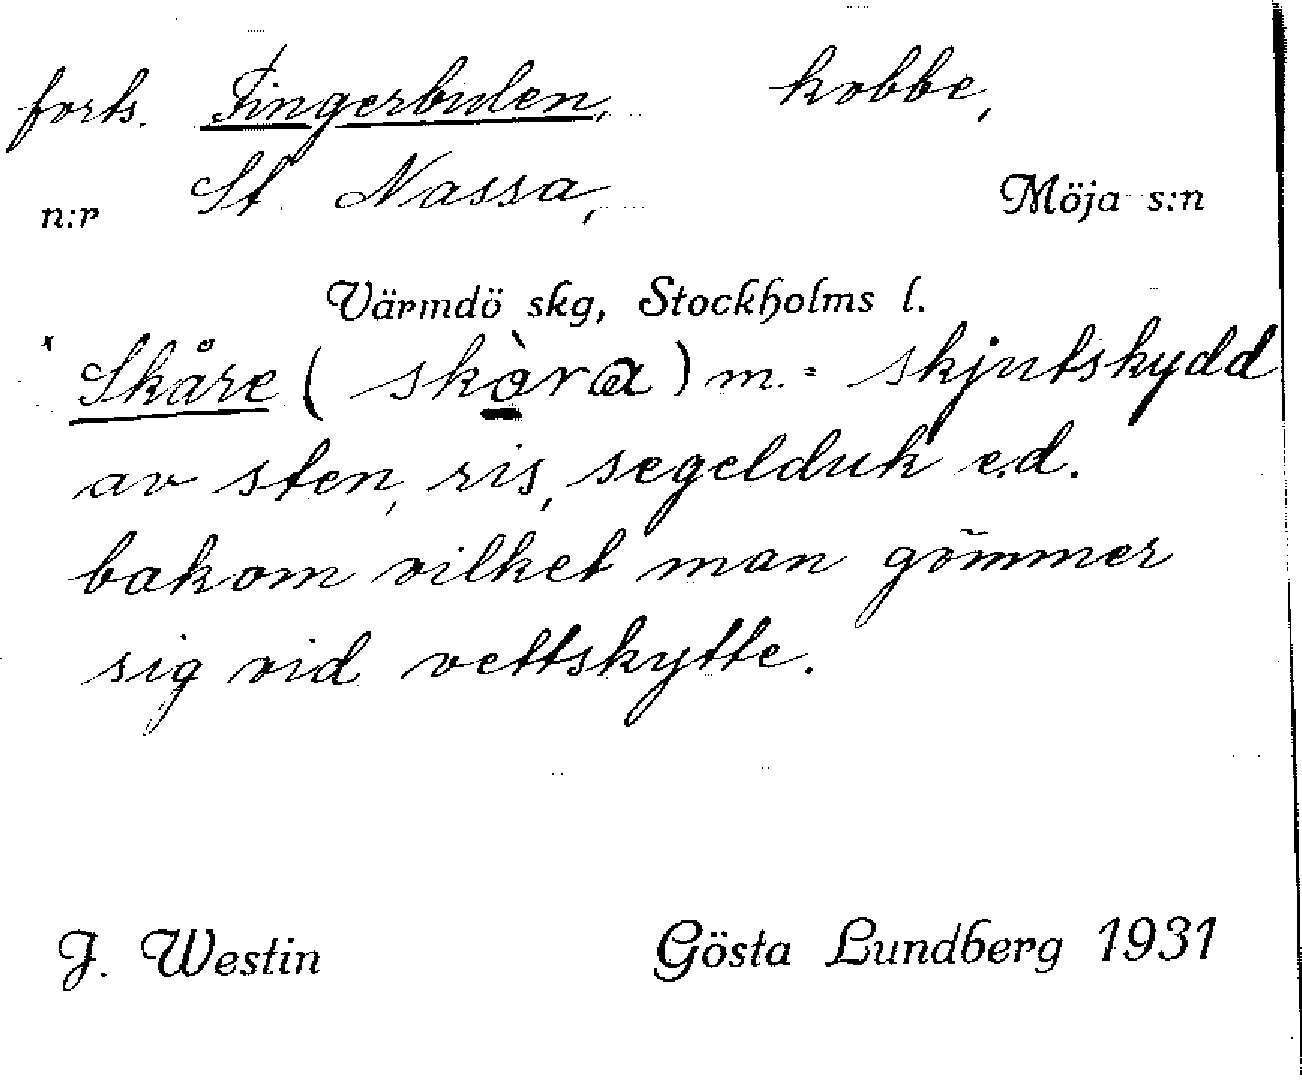 forts. Fingerbulen, kobbe,
n:r St. Nassa, Möja s:n
Värmdö skg, Stockholms l.
x Skåre ( skò̠ra ) m. = skjutskydd
av sten, ris, segelduk e.d.
bakom vilket man gömmer
sig vid vettskytte.
J. Westin Gösta Lundberg 1931